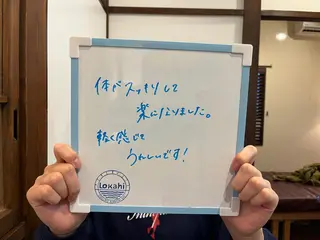 体がスッキリして
楽になりました。
軽く感じて
うれしいです!
Lokahi